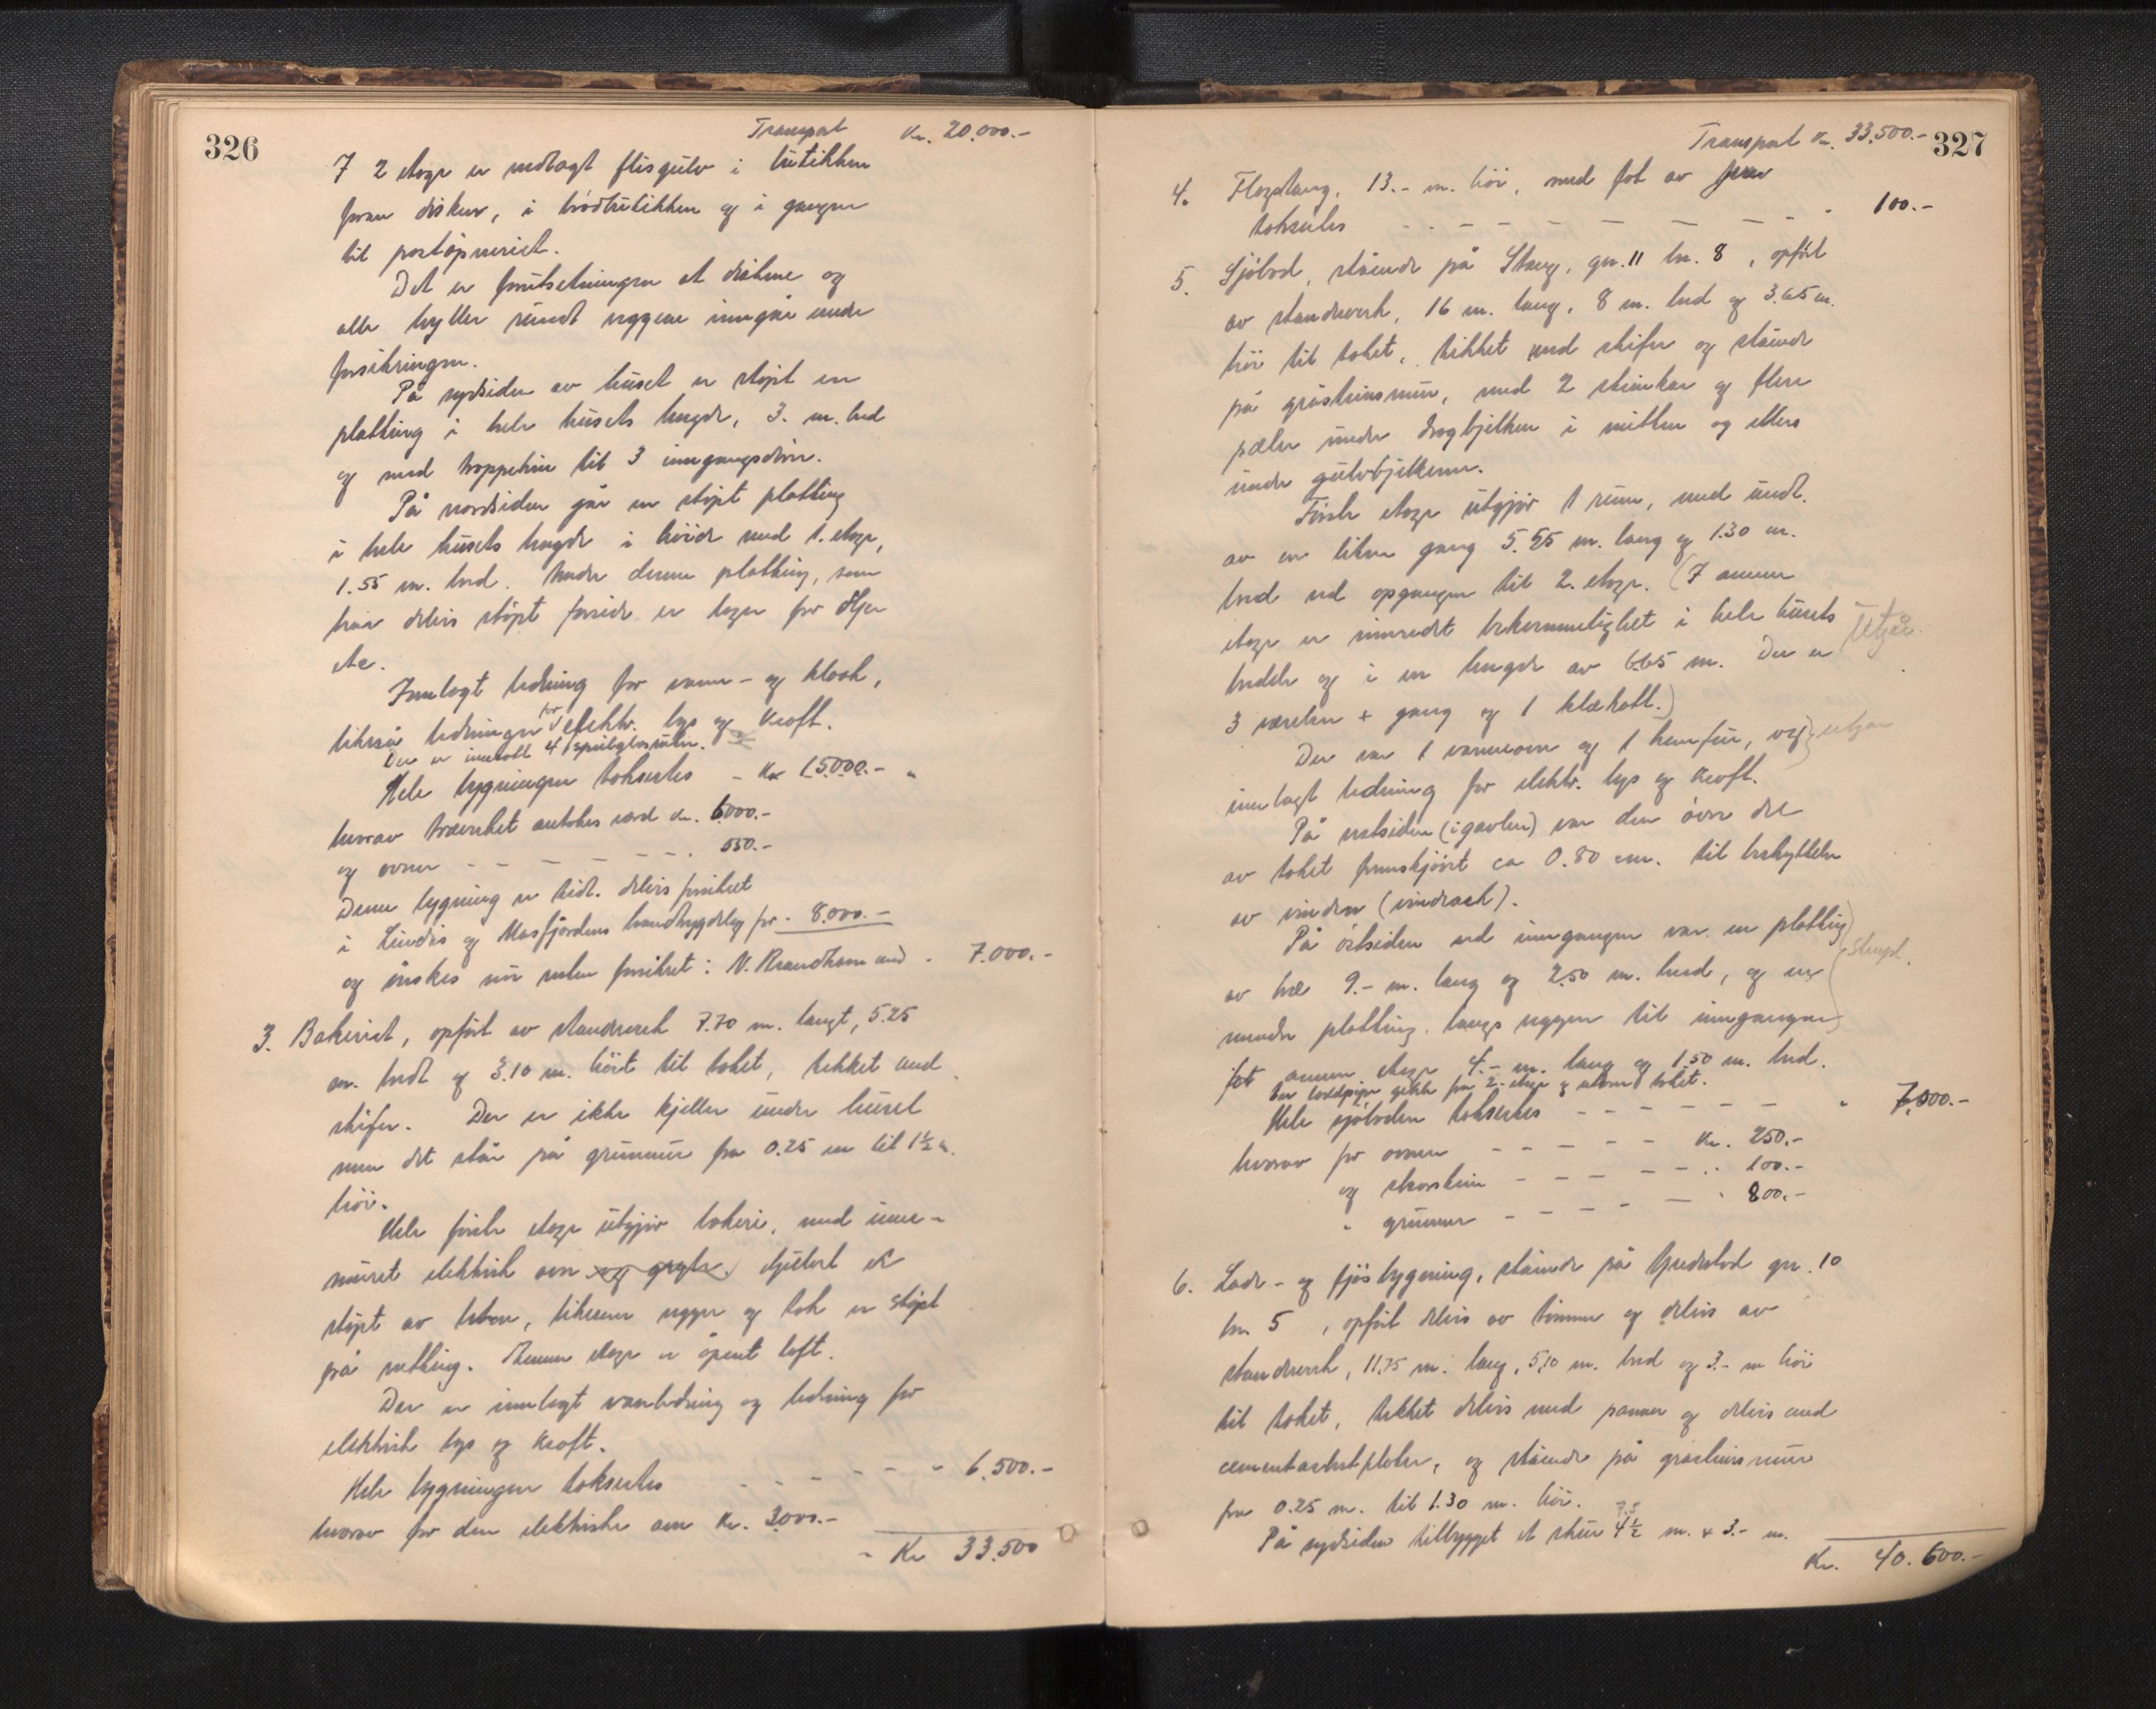 326
Transport Kr. 20.000.-
I 2 etage er nedlagt flisgulv i butikken
foran disken, i brödbutikken og i gangen
til poståpneriet.
Det er forutsetningen at diskene og
alle hyller rundt veggene inngår under
forsikringen.
På sydsiden av huset er stöpt en
platting i hele husets lengde, 3. m. bred
og med trappetrin til 3 inngangsdörer.
På nordsiden går en stöpt platting
i hele husets lengde i höide med 1. etage,
1.55 m. bred. Under denne platting, som
har delvis stöpt forside er lager for oljer
etc.
Innlagt ledning for vann- og kloak,
likeså ledninger for elektr. lys og kraft.
Der er innsatt 4 speilglasruter.
Hele bygningen takseres - Kr 15000.- "
hvorav treverket antokes verd Kr. 6000.-
og ovner - - - - - - - 550.-
Denne bygning er tidl. delvis forsikret
i Lindås og Masfjordens brandtrygdelag for - 8.000.-
og önskes nu videre forsikret i N. Brandkasse med - 7.000.-
3. Bakeriet, opfört av standverk 7.70 m. langt, 5.25
m. bredt og 3.10 m. höit til taket, tekket med
skifer. Der er ikke kjeller under huset
men det står på grunnmur fra 0.25 m til 1½ m.
höi.
Hele förste etage utgjör bakeri, med inne-
muret elektrisk ovn og gryte. Gulvet er
stöpt av beton, likesom vegger og tak er stöpt
på netting. Annen etage er åpent loft.
Der er innlagt vannledning og ledning for
elektrisk lys og kraft.
Hele bygningen takseres - - - - - 6.500.-
hvorav for den elektriske ovn Kr. 3000.-
- Kr 33.500
327
Transport Kr. 33.500.-
4. Flagstang, 13.- m. höi, med fot av jern
takseres - - - - - - - - - 100.-
5. Sjöbod, stående på Stang, gn. 11 bn. 8, opfört
av standverk, 16 m. lang, 8 m. bred og 3.65 m.
höi til taket, tekket med skifer og stående
på gråstensmur, med 2 stenkar og flere
pæler under dragbjelken i midten og ellers
under gulvbjelkene.
Förste etage utgjör 1 rum, med undt.
av en liten gang 5.55 m. lang og 1.30 m.
bred ved opgangen til 2. etage. (I annen
etage er innredet bekvemmelighet i hele husets
bredde og i en lengde av 6.65 m. Der er
3 værelser + gang og 1 klækott.)
Utgår.
Der var 1 vanneovn og 1 komfur, og
utgår
innlagt ledning for elektr. lys og kraft.
På vestsiden (i gavlen) var den övre del
av taket fremskjövet ca 0.80 cm. til beskyttelse
av vinden (vindrask).
På östsiden ved inngangen var en platting
av træ 9.- m. lang og 2.50 m. bred, og en
mindre platting langs veggen til inngangen
for annen etage 4.- m. lang og 1.50 m. bred.
En loddpipe gikk fra 2. etage og utover taket.
Hele sjöboden takseres - - - - - - - 7,000.-
hvorav for ovnen - - - - - Kr. 250.-
og skorsten - - - - - - 100.-
" grunnmur - - - - - - 800.-
6. Lade- og fjösbygning, stående på gn. 10
bn 5, opfört delvis av tömmer og delvis av
standverk, 11.75 m. lang, 5.10 m. bred og 3.- m höi
til taket, tekket delvis med panner og delvis med
cementasbestplater, og stående på gråstensmur
fra 0.25 m. til 1.30 m. höi.
7.5
På sydsiden tilbygget et skur 4½ m. x 3.- m.
Kr. 40.600.-